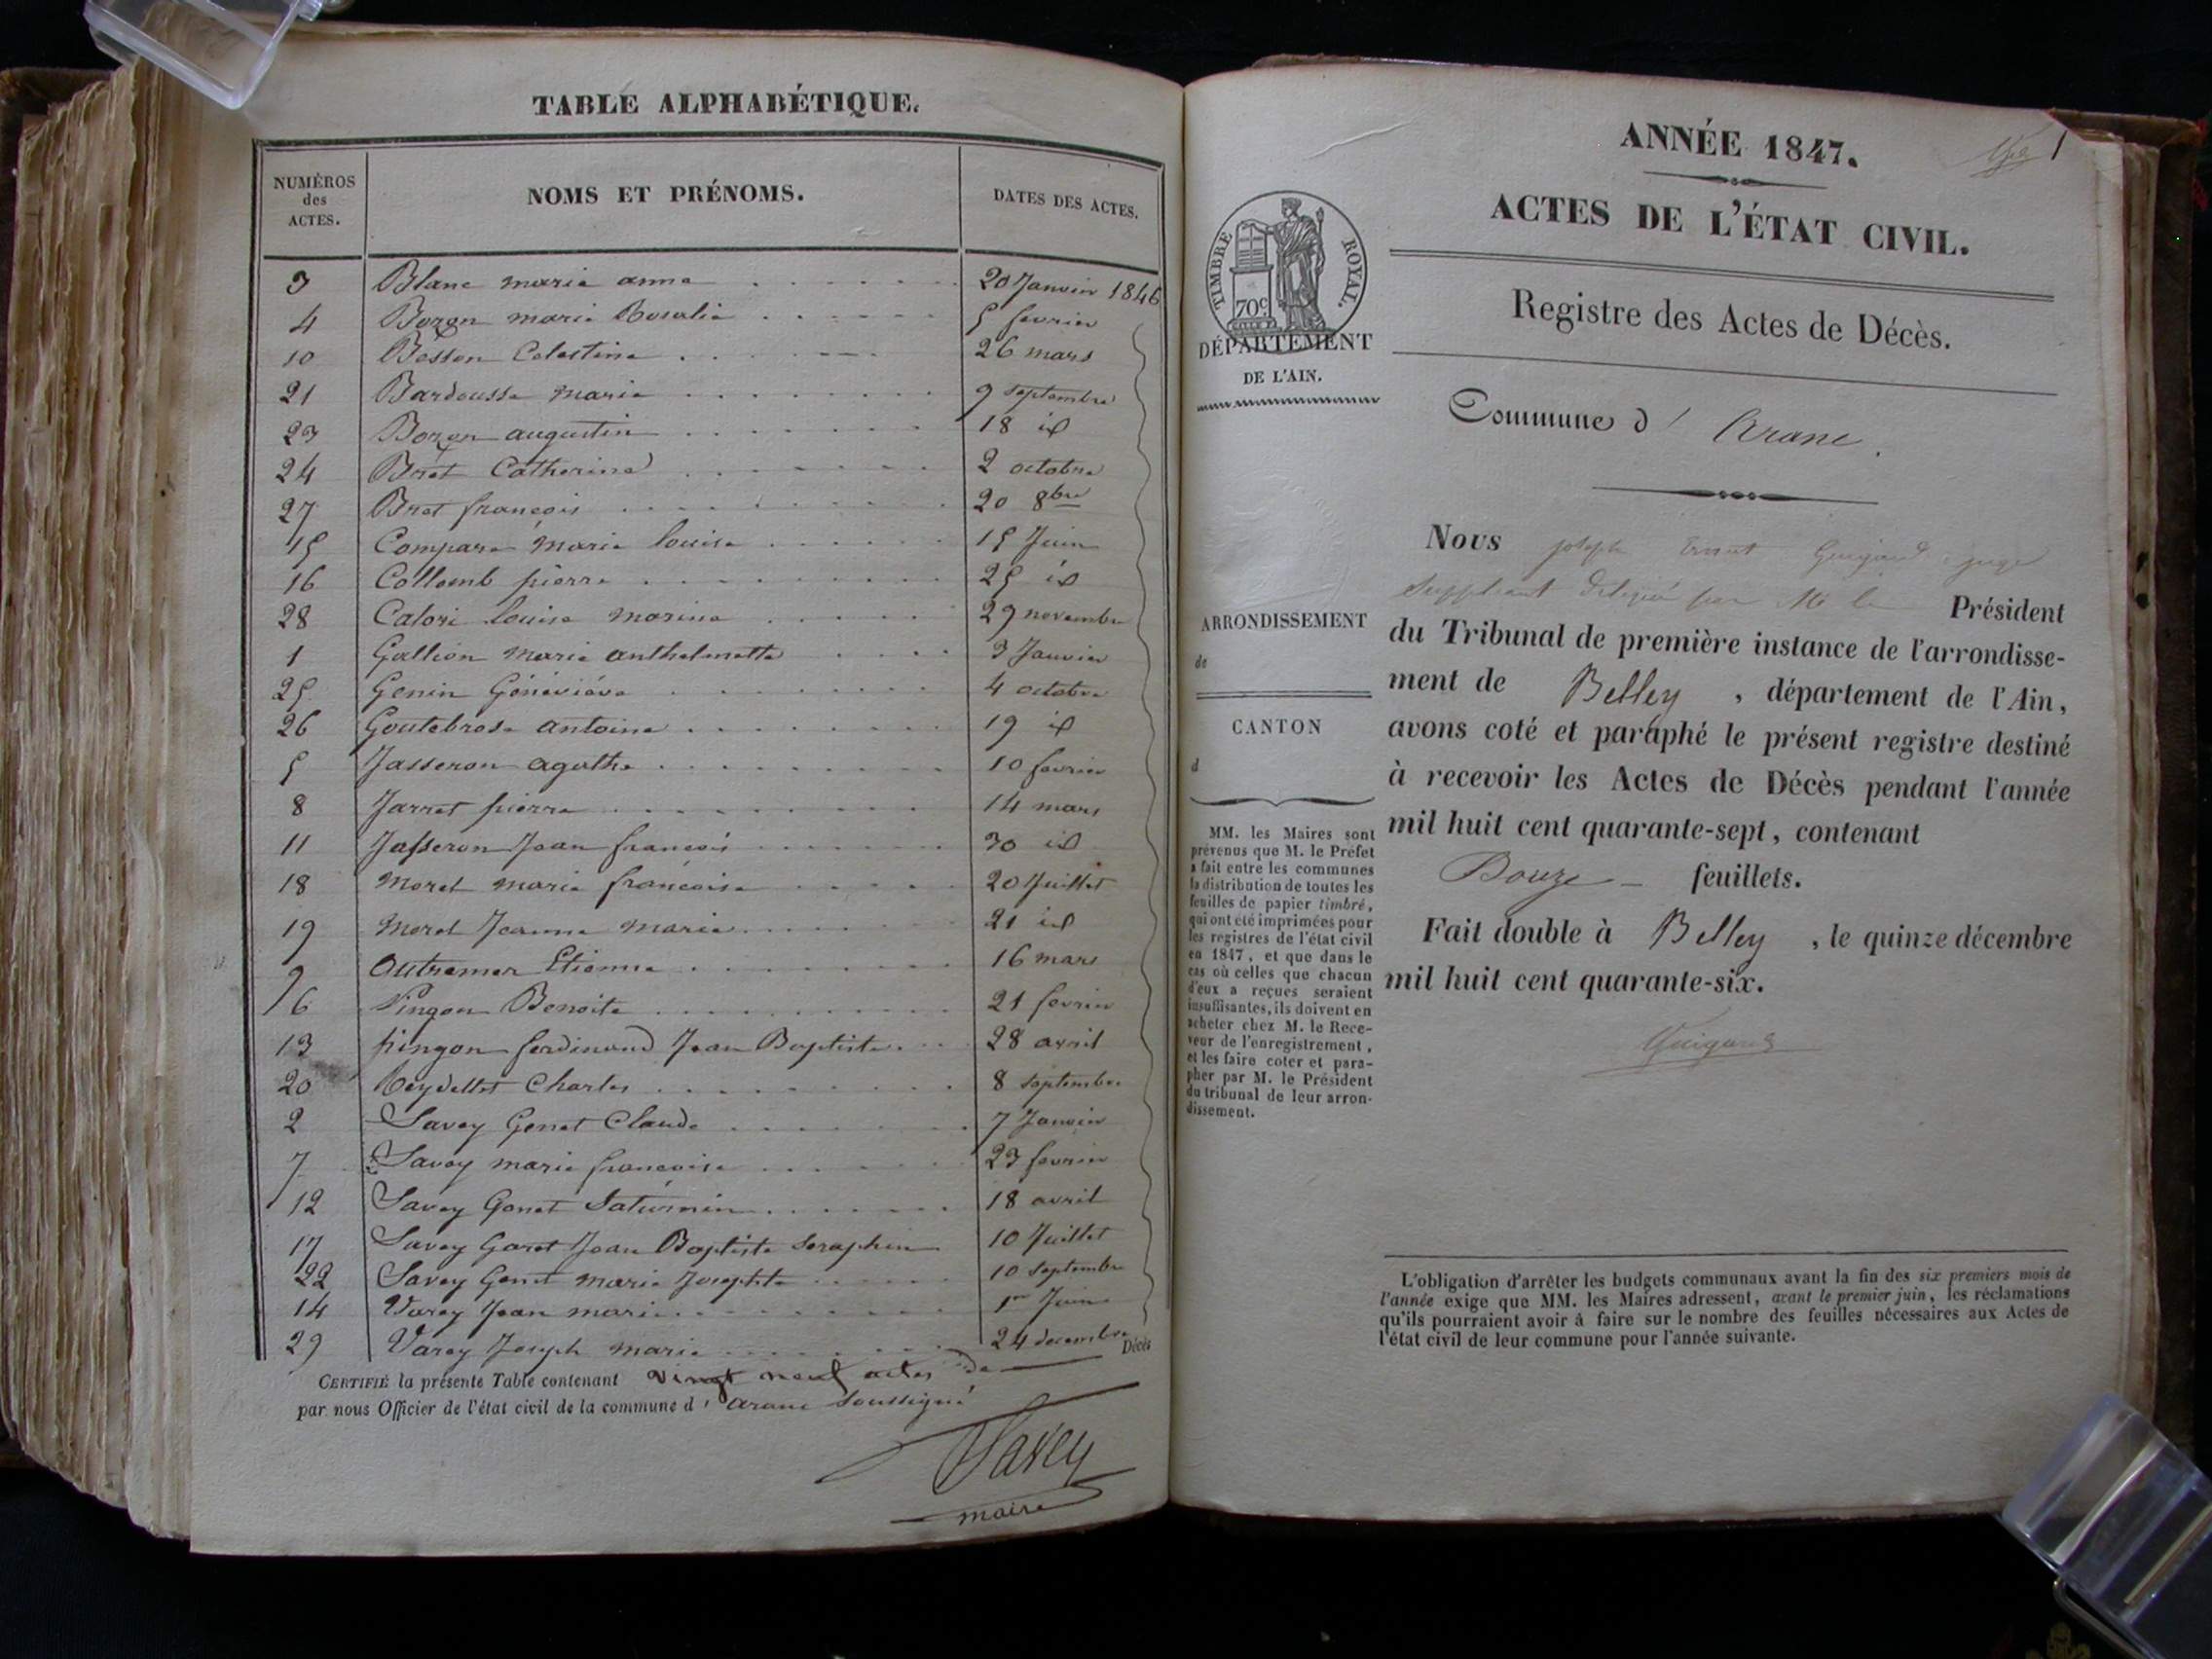 TABLE ALPHABÉTIQUE.
NUMÉROS des ACTES. NOMS ET PRÉNOMS. DATES DES ACTES.
3 Blanc marie anne 20 Janvier 1846
4 Bozon marie Rosalie 5 fevrier
10 Besson Celestine 26 mars
21 Bardousse marie 9 septembre
23 Bozon augustin 18 id
24 Bret Catherine 2 octobre
27 Bret françois 20 8bre
15 Compare Marie louise 15 Juin
16 Collomb pierre 25 id
28 Calori louise marine 29 novembre
1 Gallion marie anthelmette 3 Janvier
25 Genin Généviéve 4 octobre
26 Goutebrose antoine 19 id
5 Jasseron agathe 10 fevrier
8 Jarret pierre 14 mars
11 Jasseron Jean françois 30 id
18 moret marie françoise 20 Juillet
19 moret Jeanne marie 21 id
9 Outremer Etienne 16 mars
6 Pingon Benoite 21 fevrier
13 pingon ferdinand Jean Baptiste 28 avril
20 Reydellet Charles 8 septembre
2 Savey Genet Claude 7 Janvier
7 Savey marie françoise 23 fevrier
12 Savey Genet Saturnin 18 avril
17 Savey Garet Jean Baptiste Seraphin 10 Juillet
22 Savey Genet marie Josephte 10 septembre
14 Varey Jean marie 1er Juin
29 Varey Joseph marie 24 decembre
Décès
CERTIFIÉ la présente Table contenant vingt neuf actes de
par nous Officier de l'état civil de la commune d' arane soussigné
Savey
maire
1
ANNÉE 1847.
ACTES DE L'ÉTAT CIVIL.
TIMBRE ROYAL.
70c
DÉPARTEMENT
DE L'AIN.
Registre des Actes de Décès.
Commune d' Arane.
ARRONDISSEMENT
de
CANTON
d
MM. les Maires sont
prévenus que M. le Préfet
a fait entre les communes
la distribution de toutes les
feuilles de papier timbré,
qui ont été imprimées pour
les registres de l'état civil
en 1847, et que dans le
cas où celles que chacun
d'eux a reçues seraient
insuffisantes, ils doivent en
acheter chez M. le Rece-
veur de l'enregistrement,
et les faire coter et para-
pher par M. le Président
du tribunal de leur arron-
dissement.
Nous joseph Ernest Guigard juge
suppléant délégué par Mr le Président
du Tribunal de première instance de l'arrondisse-
ment de Belley, département de l'Ain,
avons coté et paraphé le présent registre destiné
à recevoir les Actes de Décès pendant l'année
mil huit cent quarante-sept, contenant
Douze feuillets.
Fait double à Belley, le quinze décembre
mil huit cent quarante-six.
Guigard
L'obligation d'arrêter les budgets communaux avant la fin des six premiers mois de
l'année exige que MM. les Maires adressent, avant le premier juin, les réclamations
qu'ils pourraient avoir à faire sur le nombre des feuilles nécessaires aux Actes de
l'état civil de leur commune pour l'année suivante.